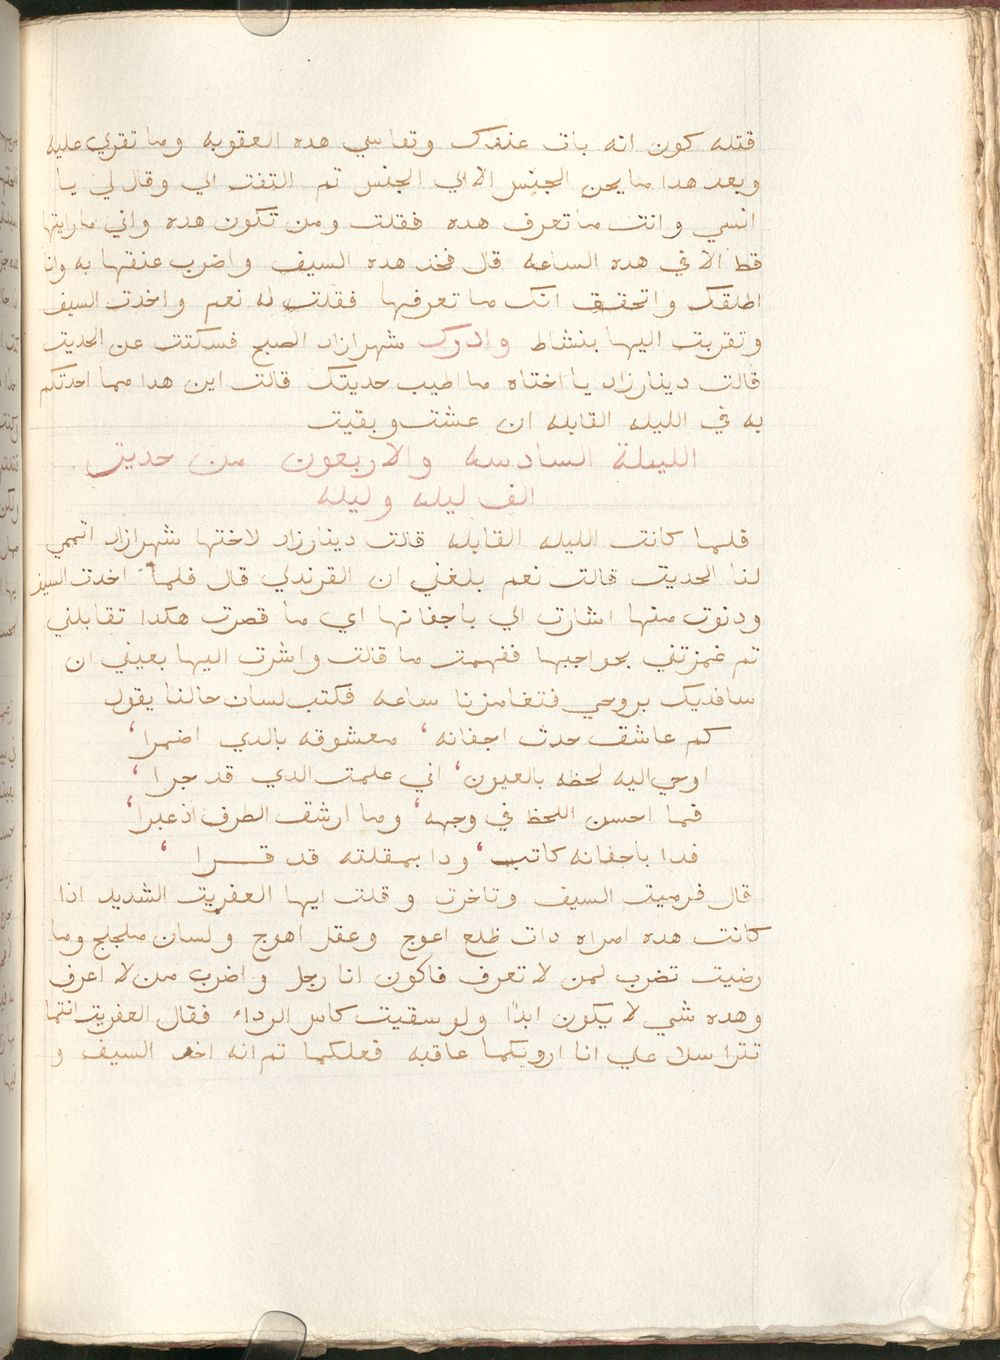 قتله كون انه بات عندك وتقاسي هده العقوبه وما تقري عليه
وبعد هدا ما يحن الجنس الا الي الجنس تم التفت الي وقال لي يا
انسي وانت ما تعرف هده فقلت ومن تكون هده واني ما رايتها
قط الا في هده الساعه قال فخد هده السيف واضرب عنقها به وانا
اطلقك واتحقق انك ما تعرفها فقلت له نعم واخدت السيف
وتقربت اليها بنشاط وادرك شهرازاد الصبح فسكتت عن الحديت
قالت دينارزاد يا اختاه ما اطيب حديتك قالت اين هدا مما احدتكم
به في الليله القابله ان عشت وبقيت
الليلة السادسه والاربعون من حديت
الف ليله وليله
فلما كانت الليله القابله قالت دينارزاد لاختها شهرازاد اتممي
لنا الحديت قالت نعم بلغني ان القرندلي قال فلما اخدت السيف
ودنوت منها اشارت الي باجفانها اي ما قصرت هكدا تقابلني
تم غمزتني بحواجبها ففهمت ما قالت واشرت اليها بعيني ان
سافديك بروحي فتغامزنا ساعه فكتب لسان حالنا يقول
كم عاشق حدث اجفانه ، معشوقه بالدي اضمرا ،
اوحي اليه لحظه بالعيون ، اني علمت الدي قد جرا ،
فما احسن اللحظ في وجهه ، وما ارشق الطرف اذ عبرا ،
فدا باجفانه كاتب ، ودا بمقلته قد قرا ،
قال فرميت السيف وتاخرت وقلت ايها العفريت الشديد ادا
كانت هده امراه دات ظلع اعوج وعقل اهوج ولسان ملجلج وما
رضيت تضرب لمن لا تعرف فاكون انا رجل واضرب من لا اعرف
وهده شي لا يكون ابدًا ولو سقيت كاس الرداء فقال العفريت انتما
تتراسلا علي انا اروتكما عاقبه فعلكما تم انه اخد السيف و